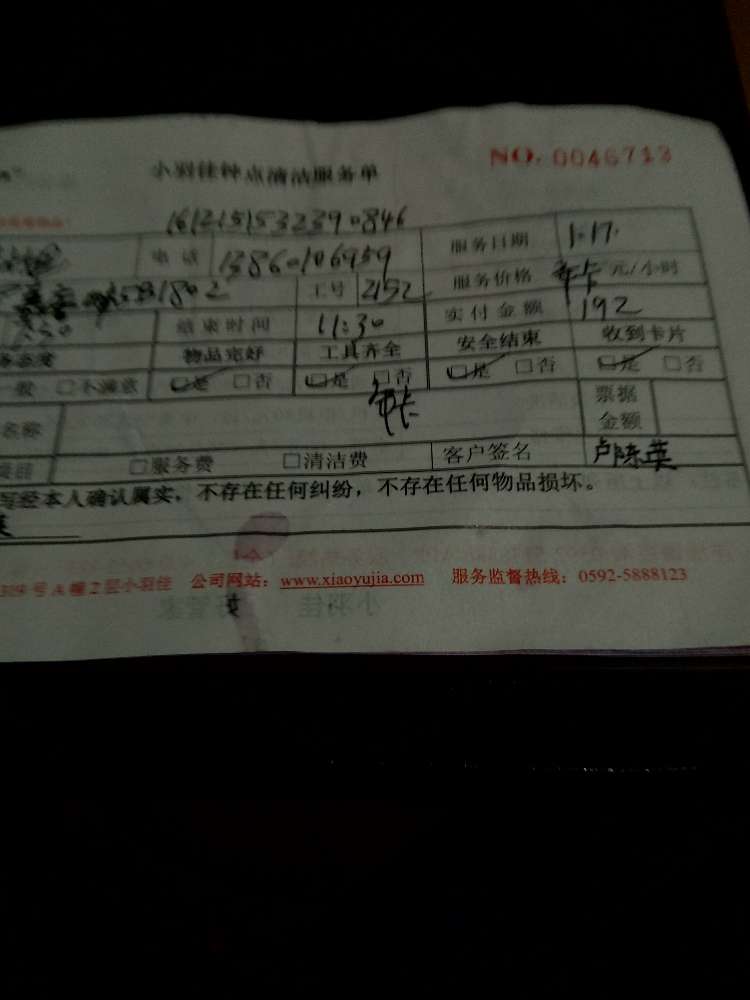 小羽佳钟点清洁服务单 NO. 0046713
1612151532390846
电话 13860106959 服务日期 1.17.
1802 工号 2152 服务价格 年卡 元/小时
:30 结束时间 11:30 实付金额 192
态度 物品完好 工具齐全 安全结束 收到卡片
般 □不满意 □是 □否 □是 □否 □是 □否 □是 □否
名称 年卡 票据金额
□服务费 □清洁费 客户签名 卢陈英
写经本人确认属实,不存在任何纠纷,不存在任何物品损坏。
309号A幢2层小羽佳 公司网站:www.xiaoyujia.com 服务监督热线:0592-5888123